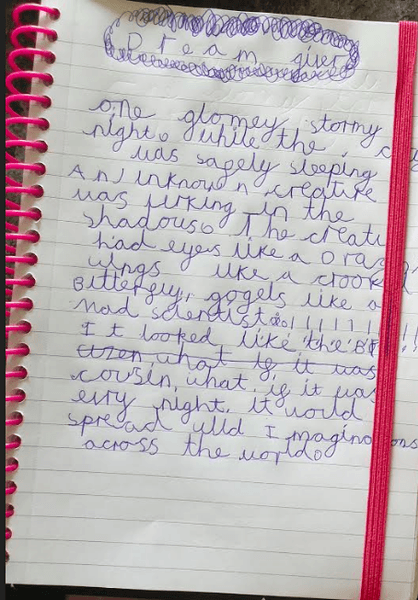 Dream giver
one glomey stormy
night. while the
was sagely sleeping
And unknown creature
was lurking in the
shadows. The creatu
had eyes like a orang
wings like a crook
Butterguy, gogels like a
mad scientist!!!!!!!
It looked like the BF
what if it was
cousin, what if it was
evry night, it would
spread wild Imaginations
across the world.